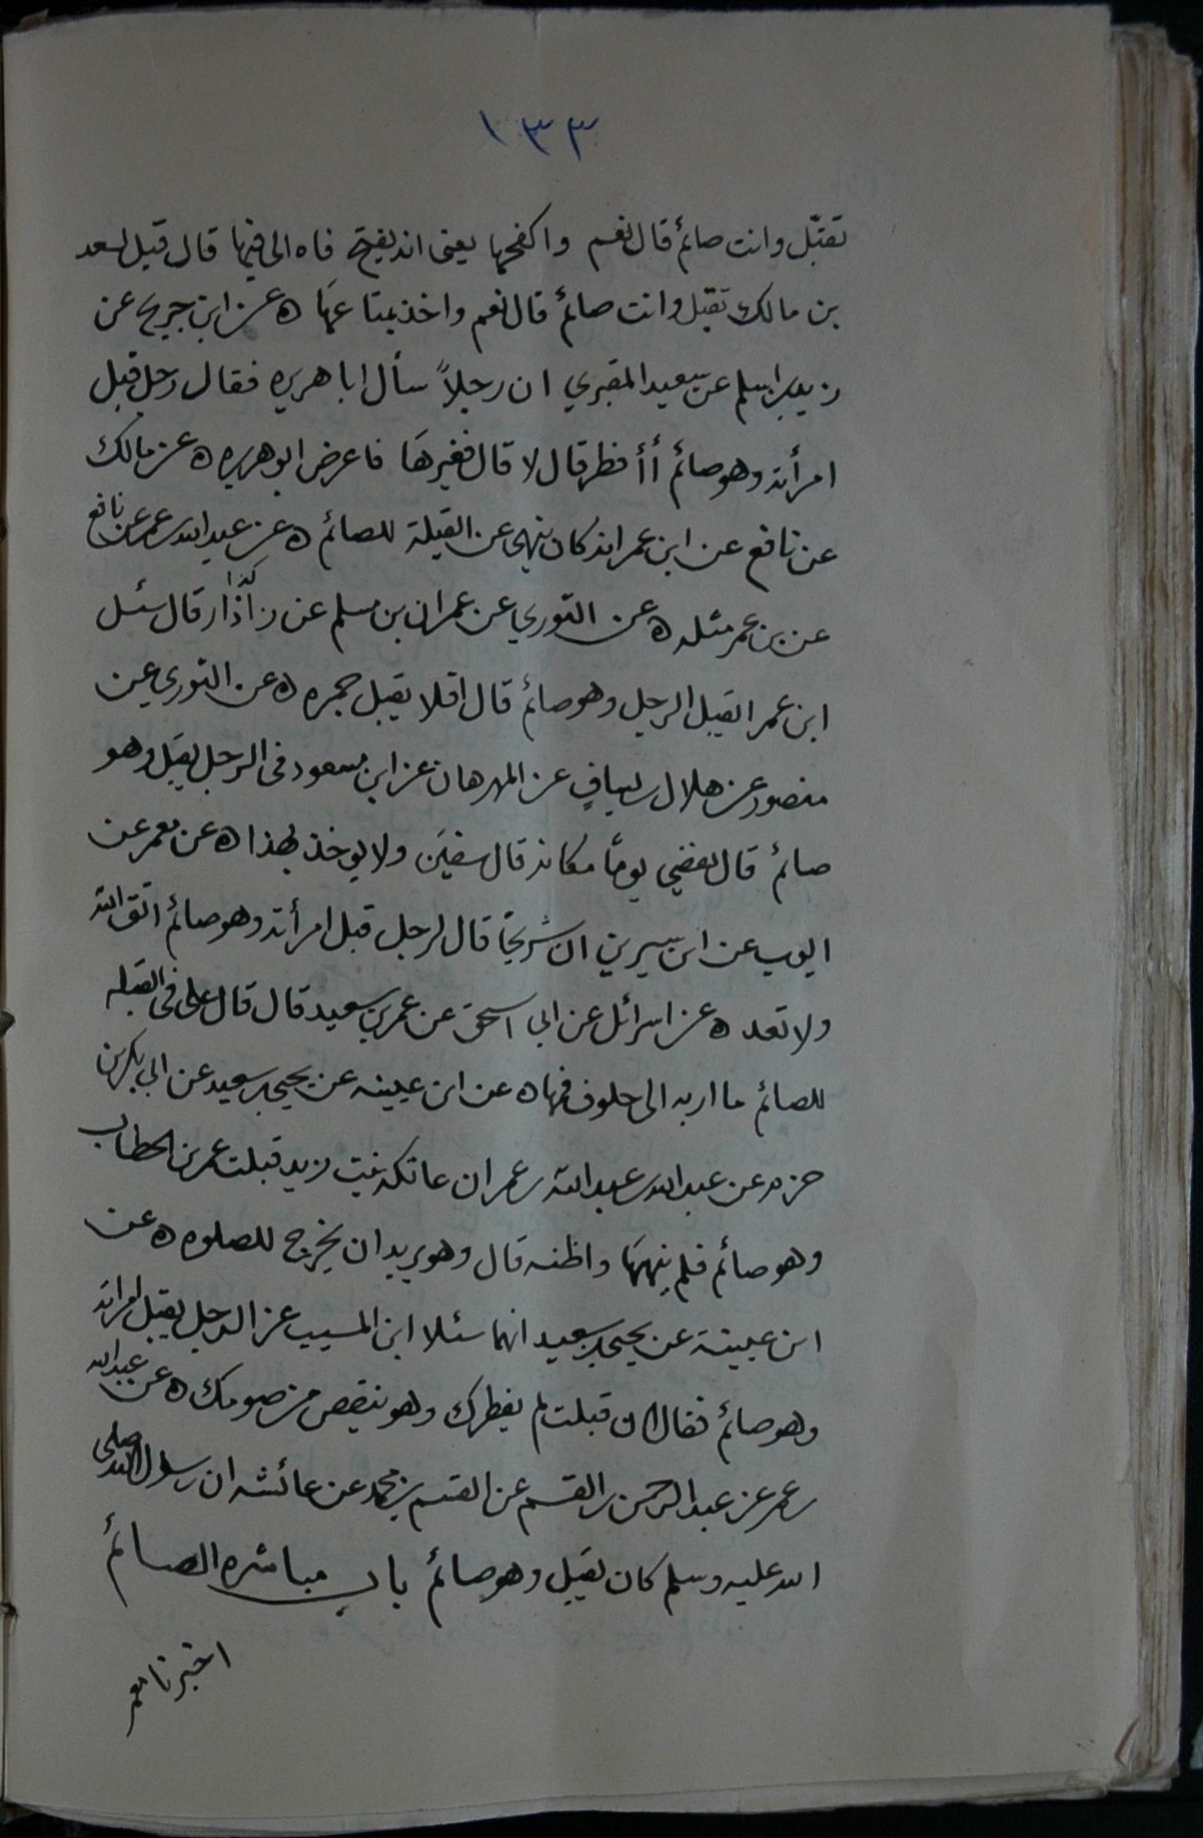 ١٣٣
تقبّل وانت صائم قال نعم واكفحها يعنى انه يفتح فاه الى فيها قال قيل لسعد
بن مالك تقبّل وانت صائم قال نعم واخذ بمتاعها ه عن ابن جريج عن
زيد بن اسلم عن سعيد المقبري ان رجلاً سأل ابا هريره فقال رجل قبل
امرأته وهو صائم أأفطر قال لا قال فغيرها فاعرض ابو هريره ه عن مالك
عن نافع عن ابن عمر انه كان ينهى عن القبلة للصائم ه عن عبد الله بن عمر عن نافع
عن بن عمر مثله ه عن الثوري عن عمران بن مسلم عن زاذار كذا قال سئل
ابن عمر ايقبل الرجل وهو صائم قال افلا يقبل جمره ه عن الثوري عن
منصور عن هلال بن يساف عن الهرهان عن ابن مسعود فى الرجل يقبل وهو
صائم قال يقضي يومًا مكانه قال سفين ولا يوخذ بهذا ه عن معمر عن
ايوب عن ابن سيرين ان شريحًا قال لرجل قبل امرأته وهو صائم اتق الله
ولا تعد ه عن اسرائل عن ابى اسحق عن عمر بن سعيد قال قال على فى القبله
للصائم ما اربه الى خلوف فيها ه عن ابن عيينه عن يحيى بن سعيد عن ابى بكر بن
حزم عن عبد الله بن عبد الله بن عمر ان عاتكه بنت زيد قبلت عمر بن الخطاب
وهو صائم فلم ينهها واظنه قال وهو يريد ان يخرج للصلوه ه عن
ابن عيينة عن يحيى بن سعيد انهما سئلا ابن المسيب عن الرجل يقبل امراته
وهو صائم فقال ان قبلت لم يفطرك وهو ينقص من صومك ه عن عبيد الله
بن عمر عن عبد الرحمن بن القسم عن القسم بن محمد عن عائشه ان رسول الله صلى
الله عليه وسلم كان يقبل وهو صائم باب مباشره الصائم
اخبرنا معمر